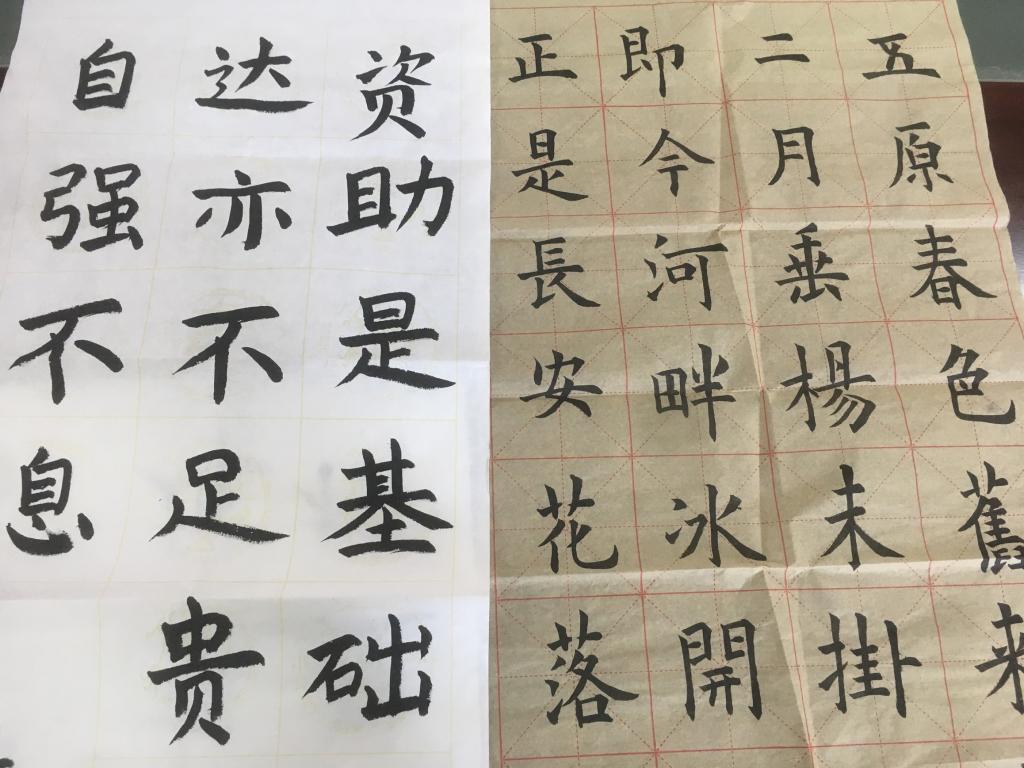 五原春色舊来
二月垂楊未掛
即今河畔冰開
正是長安花落
资助是基础
达亦不足贵
自强不息